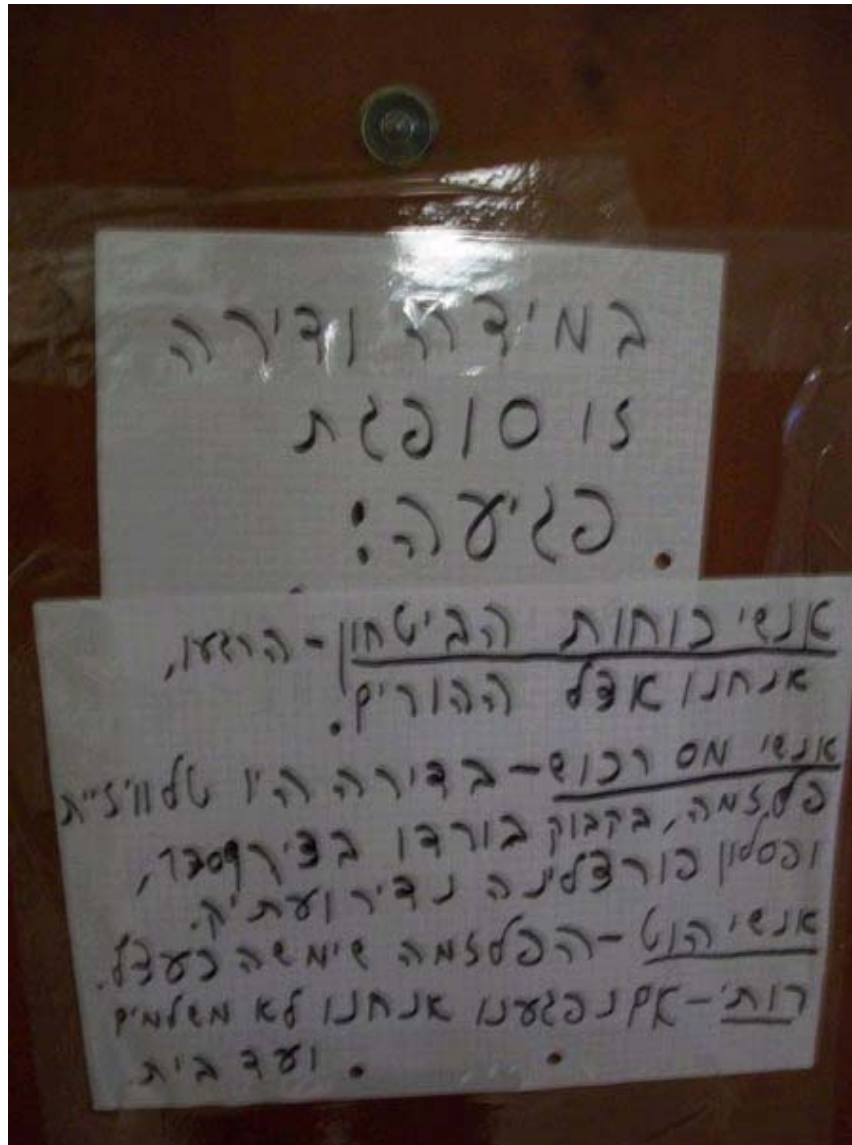 במידה ודירה
זו סופגת
פגיעה:
אנשי כוחות הביטחון - הרגעו,
אנחנו אצל ההורים.
אנשי מס רכוש - בדירה היו טלוויזיית
פלזמה, בקבוק בורדו בציר 1967,
ופסלון פורצלינה נדיר ועתיק.
אנשי הוט - הפלזמה שימשה כעציץ.
רותי - אם נפגענו אנחנו לא משלמים
ועד בית.